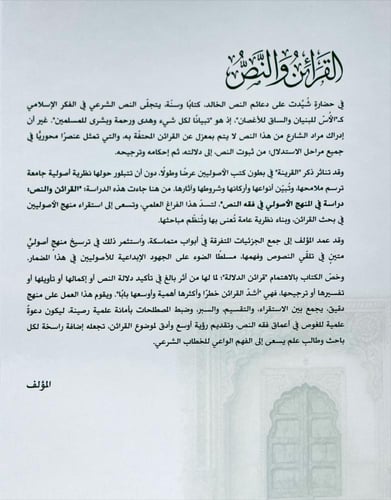 القرائن والنص
في حضارة شُيِّدت على دعائم النص الخالد، كتابًا وسنّة، يتجلّى النص الشرعي في الفكر الإسلامي
كـ"الأُسّ للبنيان والساق للأغصان"، إذ هو "تبيانًا لكل شيء وهدى ورحمة وبشرى للمسلمين". غير أن
إدراك مراد الشارع من هذا النص لا يتم بمعزل عن القرائن المحتفّة به، والتي تمثل عنصرًا محوريًا في
جميع مراحل الاستدلال: من ثبوت النص، إلى دلالته، ثم إحكامه وترجيحه.
وقد تناثر ذكر "القرينة" في بطون كتب الأصوليين عرضًا وطولًا، دون أن تتبلور حولها نظرية أصولية جامعة
ترسم ملامحها، وتُبيّن أنواعها وأركانها وشروطها وآثارها. من هنا جاءت هذه الدراسة: "القرائن والنص:
دراسة في المنهج الأصولي في فقه النص". لتسدّ هذا الفراغ العلمي، وتسعى إلى استقراء منهج الأصوليين
في بحث القرائن، وبناء نظرية عامة تُعنى بها وتُنظّم مباحثها.
وقد عمد المؤلف إلى جمع الجزئيات المتفرقة في أبواب متماسكة، واستثمر ذلك في ترسيخ منهج أصوليّ
متين في تلقّي النصوص وفهمها، مسلطًا الضوء على الجهود الإبداعية للأصوليين في هذا المضمار.
وخصّ الكتاب بالاهتمام "قرائن الدلالة"؛ لما لها من أثر بالغ في تأكيد دلالة النص أو إكمالها أو تأويلها أو
تفسيرها أو ترجيحها، فهي "أشدّ القرائن خطرًا وأكثرها أهمية وأوسعها بابًا". ويقوم هذا العمل على منهج
دقيق، يجمع بين الاستقراء، والتقسيم، والسبر، وضبط المصطلحات بأمانة علمية رصينة، ليكون دعوةً
علمية للغوص في أعماق فقه النص، وتقديم رؤية أوسع وأدق لموضوع القرائن، تجعله إضافة راسخة لكل
باحث وطالب علم يسعى إلى الفهم الواعي للخطاب الشرعي.
المؤلف